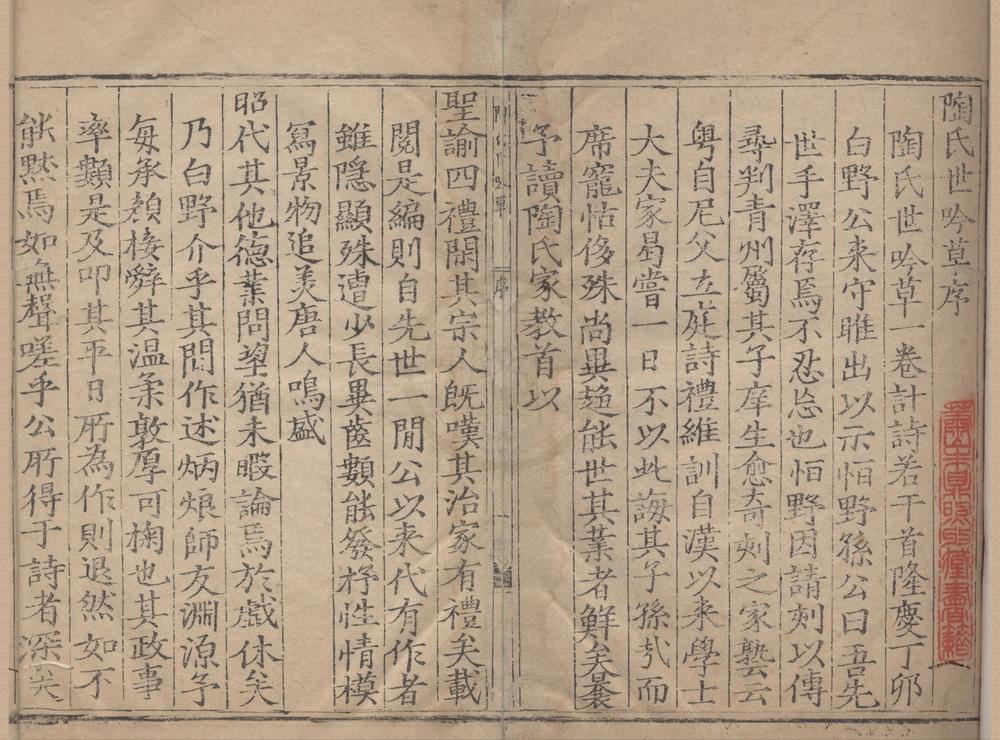 陶氏世吟草序
陶氏世吟草一卷計詩若干首隆慶丁卯
白野公来守睢出以示恒野孫公曰吾先
世手澤存焉不忍忘也恒野因請刻以傳
尋判青州屬其子庠生愈奇剡之家塾云
粤自尼父立庭詩禮維訓自漢以来學士
大夫家曷嘗一日不以此誨其子孫㢤而
席寵怙侈殊尚異趍能世其業者鮮矣曩
予讀陶氏家教首以
序
聖諭四禮閑其宗人既嘆其治家有禮矣載
閱是編則自先世一閒公以来代有作者
雖隐顯殊遭少長異齒𩔖能發抒性情模
冩景物追美唐人鳴盛
昭代其他德業問望猶未暇論焉於戲休矣
乃白野介乎其間作述炳烺師友淵源予
每承顔接辭其温柔敦厚可掬也其政事
率𩔖是及叩其平日所為作則退然如不
能黙焉如無聲嗟乎公所得于詩者深矣